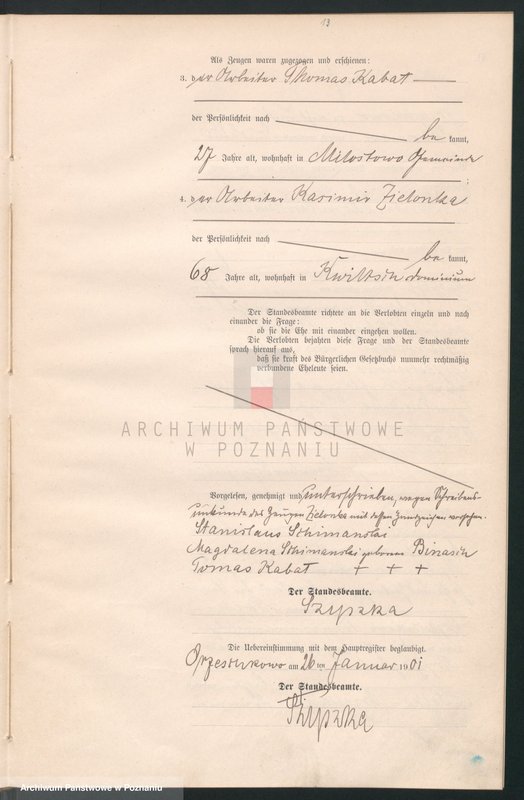 13
Als Zeugen waren zugezogen und erschienen:
3. der Arbeiter Thomas Kabat
der Persönlichkeit nach
be kannt,
27 Jahre alt, wohnhaft in Milostowo Gemeinde
4. der Arbeiter Kasimir Zielonka
der Persönlichkeit nach
be kannt,
68 Jahre alt, wohnhaft in Kwiltsch dominium
Der Standesbeamte richtete an die Verlobten einzeln und nach
einander die Frage:
ob sie die Ehe mit einander eingehen wollen.
Die Verlobten bejahten diese Frage und der Standesbeamte
sprach hierauf aus,
daß sie kraft des Bürgerlichen Gesetzbuchs nunmehr rechtmäßig
verbundene Eheleute seien.
ARCHIWUM PAŃSTWOWE
W POZNANIU
Vorgelesen, genehmigt und unterschrieben, wegen Schreibens-
unkunde des Zeugen Zielonka mit dessen Handzeichen versehen.
Stanislaus Schimanski
Magdalena Schimanski geborene Binasch
Tomas Kabat + + +
Der Standesbeamte.
Szyszka
Die Uebereinstimmung mit dem Hauptregister beglaubigt.
Orzeschkowo am 26 ten Januar 1901
Der Standesbeamte.
Szyszka
Archiwum Państwowe w Poznaniu